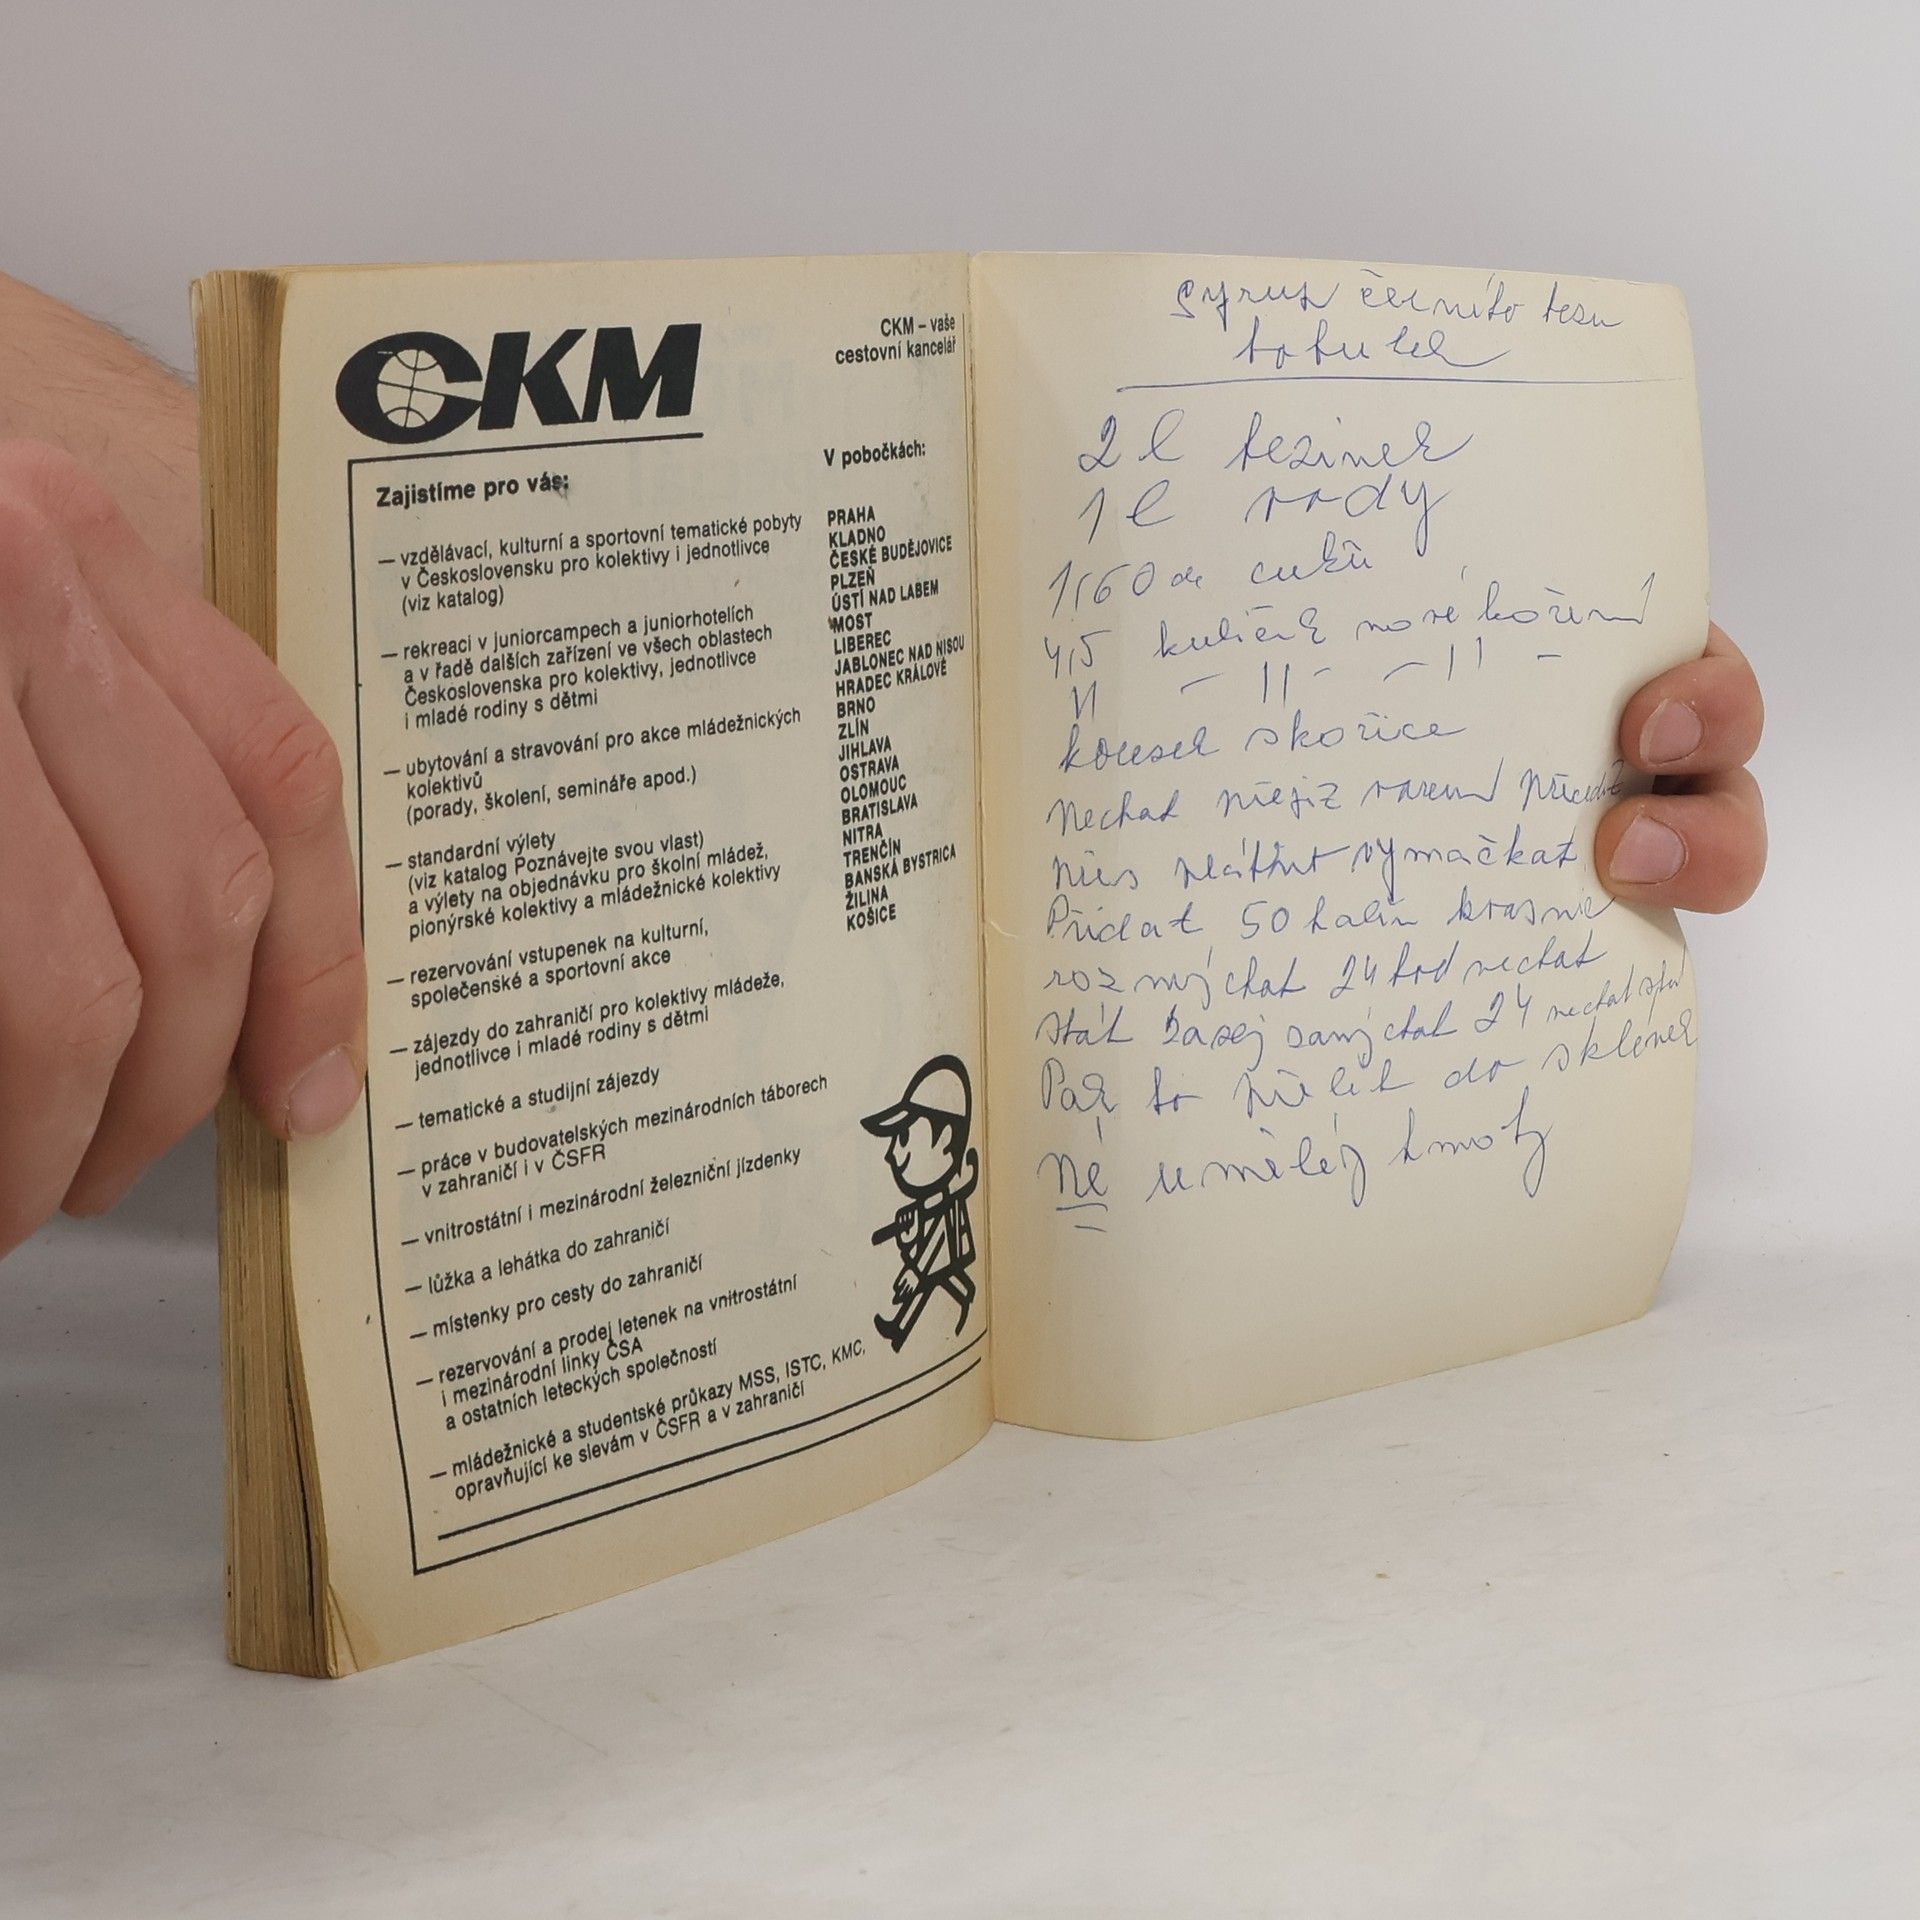 CKM
CKM – vaše
cestovní kancelář
Zajistíme pro vás:
— vzdělávací, kulturní a sportovní tematické pobyty
v Československu pro kolektivy i jednotlivce
(viz katalog)
— rekreaci v juniorcampech a juniorhotelích
a v řadě dalších zařízení ve všech oblastech
Československa pro kolektivy, jednotlivce
i mladé rodiny s dětmi
— ubytování a stravování pro akce mládežnických
kolektivů
(porady, školení, semináře apod.)
— standardní výlety
(viz katalog Poznávejte svou vlast)
a výlety na objednávku pro školní mládež,
pionýrské kolektivy a mládežnické kolektivy
— rezervování vstupenek na kulturní,
společenské a sportovní akce
— zájezdy do zahraničí pro kolektivy mládeže,
jednotlivce i mladé rodiny s dětmi
— tematické a studijní zájezdy
— práce v budovatelských mezinárodních táborech
v zahraničí i v ČSFR
— vnitrostátní i mezinárodní železniční jízdenky
— lůžka a lehátka do zahraničí
— místenky pro cesty do zahraničí
— rezervování a prodej letenek na vnitrostátní
i mezinárodní linky ČSA
a ostatních leteckých společností
— mládežnické a studentské průkazy MSS, ISTC, KMC,
opravňující ke slevám v ČSFR a v zahraničí
V pobočkách:
PRAHA
KLADNO
ČESKÉ BUDĚJOVICE
PLZEŇ
ÚSTÍ NAD LABEM
MOST
LIBEREC
JABLONEC NAD NISOU
HRADEC KRÁLOVÉ
BRNO
ZLÍN
JIHLAVA
OSTRAVA
OLOMOUC
BRATISLAVA
NITRA
TRENČÍN
BANSKÁ BYSTRICA
ŽILINA
KOŠICE
Syrup černího bezu
bobulek
2 l bezinek
1 l vody
1,60 cukru
4,5 kuliček nové koření
11 – 11 – – 11 –
kousek skořice
Nechat vařem
plátno vymačkat
Přidat 50 krasnie
rozmýchat 24 hod nechat
stát zasej zamýchat 24 nechat
Pak to přelít do sklenek
Né umělej hmoty